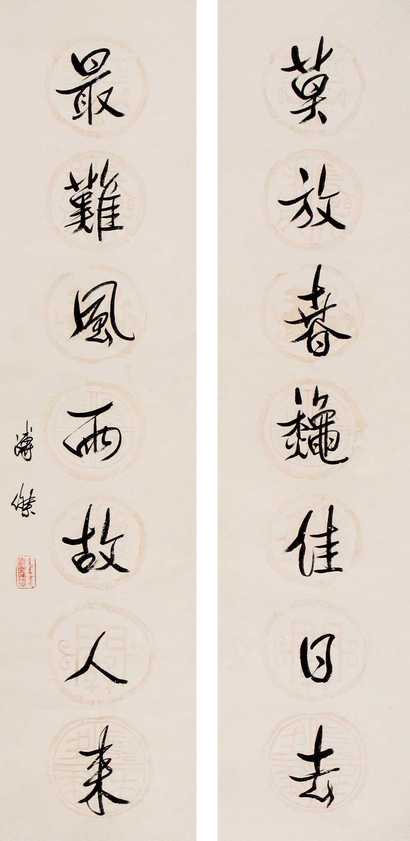 莫放春龝佳日去
最難風雨故人來
溥傑